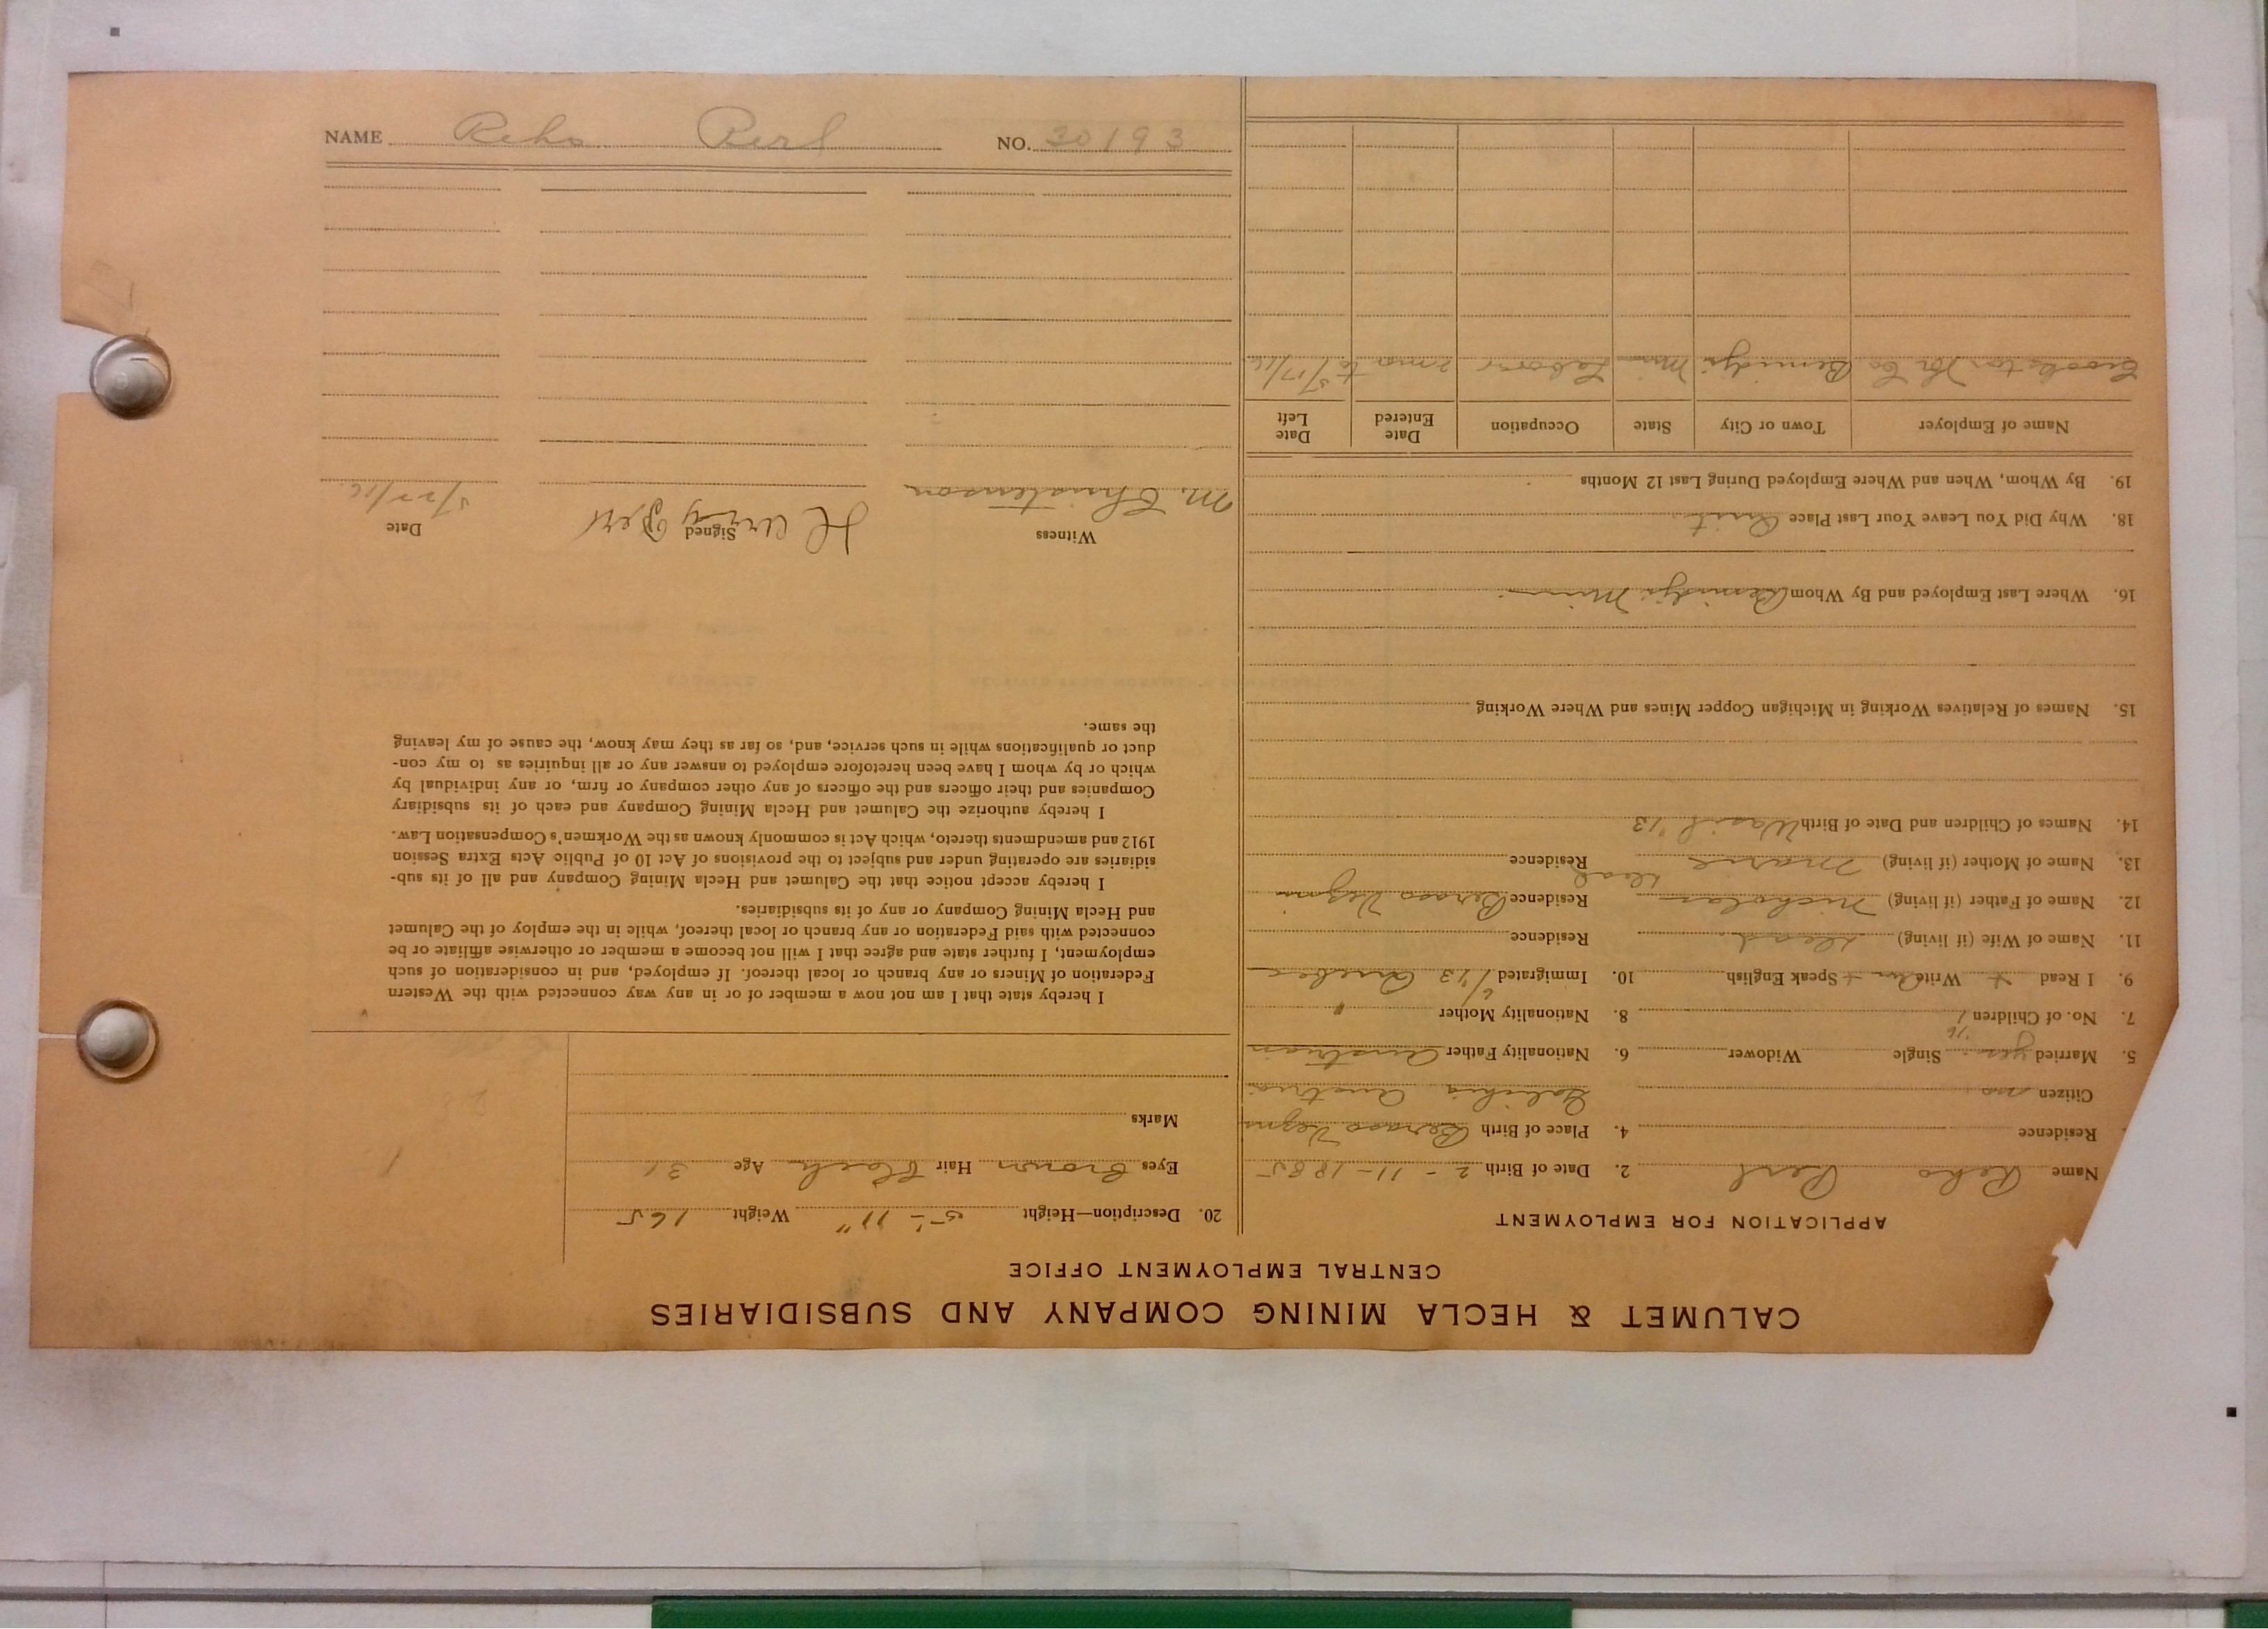 NAME Rehs Perl NO. 30193
CALUMET & HECLA MINING COMPANY AND SUBSIDIARIES
CENTRAL EMPLOYMENT OFFICE
APPLICATION FOR EMPLOYMENT
Name Rehs Perl 2. Date of Birth 2-11-1885
Residence 4. Place of Birth
Citizen no Austria
5. Married yes Single Widower 6. Nationality Father Austrian
7. No. of Children 1 8. Nationality Mother "
9. I Read Write Speak English 10. Immigrated
11. Name of Wife (if living) dead Residence
12. Name of Father (if living) Nicholas Residence
13. Name of Mother (if living) Marie dead Residence
14. Names of Children and Date of Birth Wasil '13
15. Names of Relatives Working in Michigan Copper Mines and Where Working
16. Where Last Employed and By Whom Bemidji Minn
18. Why Did You Leave Your Last Place Quit
19. By Whom, When and Where Employed During Last 12 Months
Name of Employer Town or City State Occupation Date Entered Date Left
Crookston Co Bemidji Minn Laborer 2 mos to 5/17/16
20. Description—Height 5'-11" Weight 165
Eyes Brown Hair Black Age 31
Marks
I hereby state that I am not now a member of or in any way connected with the Western
Federation of Miners or any branch or local thereof. If employed, and in consideration of such
employment, I further state and agree that I will not become a member or otherwise affiliate or be
connected with said Federation or any branch or local thereof, while in the employ of the Calumet
and Hecla Mining Company or any of its subsidiaries.
I hereby accept notice that the Calumet and Hecla Mining Company and all of its sub-
sidiaries are operating under and subject to the provisions of Act 10 of Public Acts Extra Session
1912 and amendments thereto, which Act is commonly known as the Workmen's Compensation Law.
I hereby authorize the Calumet and Hecla Mining Company and each of its subsidiary
Companies and their officers and the officers of any other company or firm, or any individual by
which or by whom I have been heretofore employed to answer any or all inquiries as to my con-
duct or qualifications while in such service, and, so far as they may know, the cause of my leaving
the same.
Witness Signed Date
M. Christenson 5/22/16